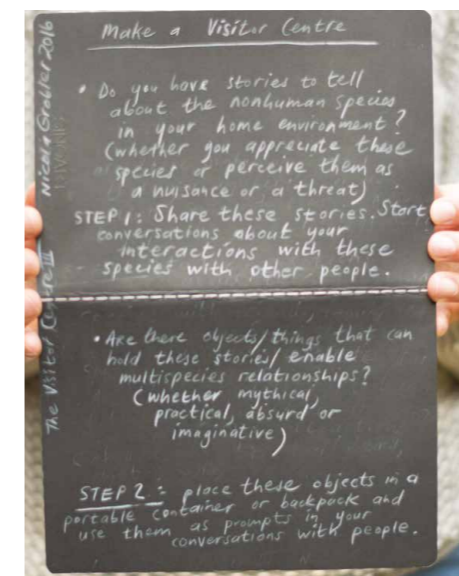 Make a Visitor Centre
• Do you have stories to tell
about the nonhuman species
in your home environment?
(whether you appreciate these
species or perceive them as
a nuisance or a threat)
STEP 1: Share these stories. Start
conversations about your
interactions with these
species with other people.
• Are there objects/things that can
hold these stories/enable
multispecies relationships?
(whether mythical,
practical, absurd or
imaginative)
STEP 2: place these objects in a
portable container or backpack and
use them as prompts in your
conversations with people.
The Visitor Centre III Nicola Grobler 2016